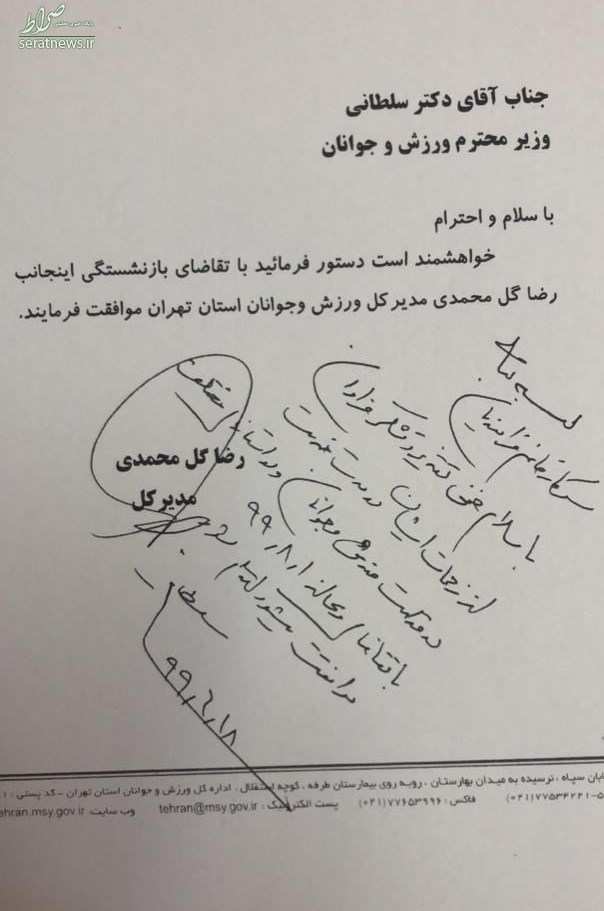 صراط
seratnews.ir
جناب آقای دکتر سلطانی
وزیر محترم ورزش و جوانان
با سلام و احترام
خواهشمند است دستور فرمائید با تقاضای بازنشستگی اینجانب
رضا گل محمدی مدیر کل ورزش وجوانان استان تهران موافقت فرمایند.
رضا گل محمدی
مدیر کل
بسمه تعالی
سرکار خانم
با سلام ضمن تقدیر و تشکر فراوان
از زحمات ایشان در مدت خدمت
در وزارت ورزش و جوانان و
با تقاضا از ۹۹,۸,۱
موافقت میشود
۹۹,۶,۱۸
ابان سپاه ، نرسیده به میدان بهارستان ، روبه روی بیمارستان طرفه ، کوچه استقلال ، اداره کل ورزش و جوانان استان تهران - کد پستی :
(۰۲۱)۷۷۵۳۴۲۴۱-۵ فاکس : ۷۷۶۵۳۹۹۶(۰۲۱) پست الکترونیک : tehran@msy.gov.ir وب سایت : ehran.msy.gov.ir